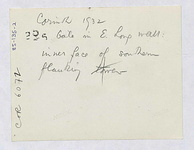 Corinth 1932
Gate in E Long Wall:
inner face of southern
flanking tower
COR 6072